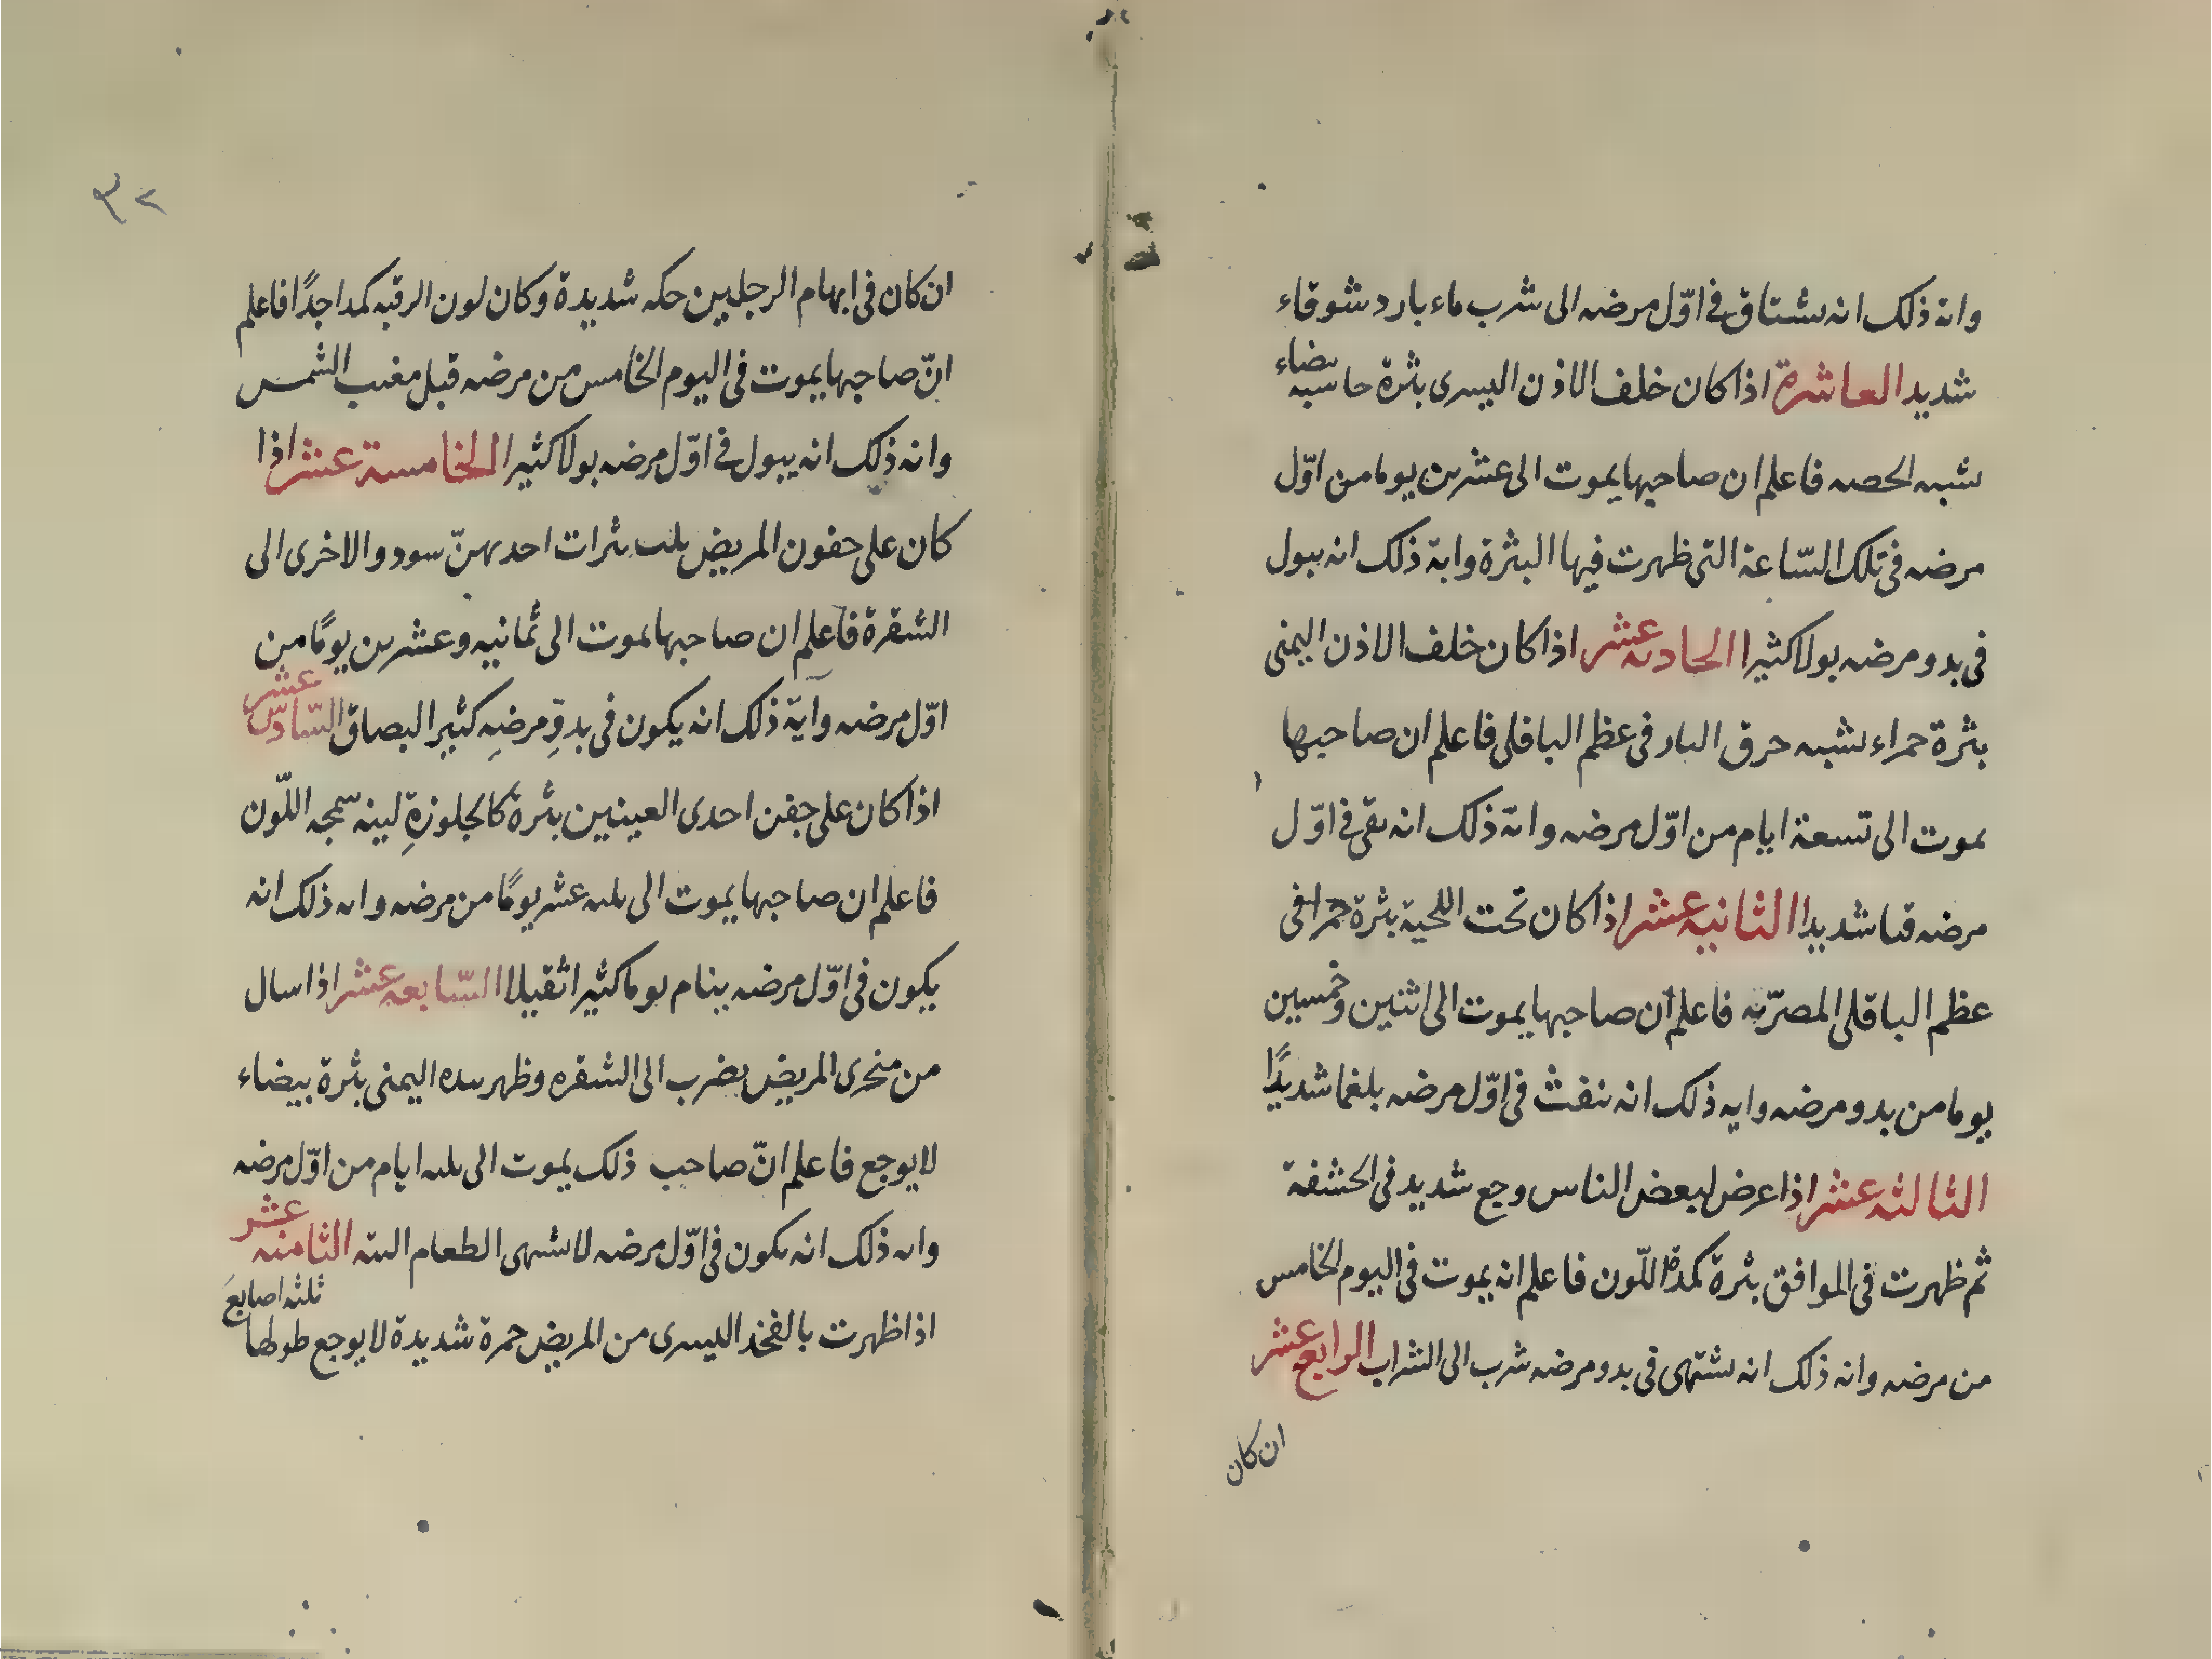 وانة ذلک انه يشتاق فى اوّل مرضه الى شرب ماء بارد شوقاء
شديد العاشرة اذا كان خلف الاذن اليسرى بثرة حاسبه بيضاء
شبه الحصه فاعلم ان صاحبها يموت الى عشرين يوما من اوّل
مرضه فى تلک السّاعة التى ظهرت فيها البثرة وابة ذلک انه يبول
فى بدو مرضه بولا كثيرا الحاديه عشر اذا كان خلف الاذن اليمنى
بثرة حمراء يشبه حرق النار فى عظم الباقلى فاعلم ان صاحبها
يموت الى تسعة ايام من اوّل مرضه وانة ذلک انه يقى فى اوّل
مرضه قيا شديدا الثانيه عشر اذا كان تحت اللحية بثرة حمرا فى
عظم الباقلى المصرّيه فاعلم ان صاحبها يموت الى اثنين وخمسين
يوما من بدو مرضه وايه ذلک انه ينفث فى اوّل مرضه بلغما شديدًا
الثالثه عشر اذا عرض لبعض الناس وجع شديد فى الحشفة
ثم ظهرت فى الموافق بثرة كمدة اللّون فاعلم انه يموت فى اليوم الخامس
من مرضه وانه ذلک انه يشتهى فى بدو مرضه شرب الى الشراب الرابع عشر
ان كان
٣٢
ان كان فى ابهام الرجلين حكه شديدة وكان لون الرقبه كمدا جدًا فاعلم
انّ صاحبها يموت فى اليوم الخامس من مرضه قبل مغيب الشمس
وانه ذلک انه يبول فى اوّل مرضه بولا كثيرا الخامسة عشر اذا
كان على جفون المريض ثلث بثرات احديهنّ سود والاخرى الى
الشقرة فاعلم ان صاحبها يموت الى ثمانيه وعشرين يومًا من
اوّل مرضه وآية ذلک انه يكون فى بدوِ مرضِه كثير البصاق السّادس عشر
اذا كان على جفن احدى العينين بثرة كالجلوزةِ لينه سمجه اللّون
فاعلم ان صاحبها يموت الى ثلثه عشر يومًا من مرضه وايه ذلک انه
يكون فى اوّل مرضه ينام نوما كثيرا ثقيلا السّابعه عشر اذا سال
من منخرى المريض يضرب الى الشقره وظهر بيده اليمنى بثرة بيضاء
لا يوجع فاعلم انّ صاحب ذلک يموت الى ثلثه ايام من اوّل مرضه
وايه ذلک انه يكون فى اوّل مرضه لا يشتهى الطعام البته الثامنه عشر
اذا ظهرت بالفخذ اليسرى من المريض حمرة شديدة لا يوجع طولها ثلثه اصابعَ